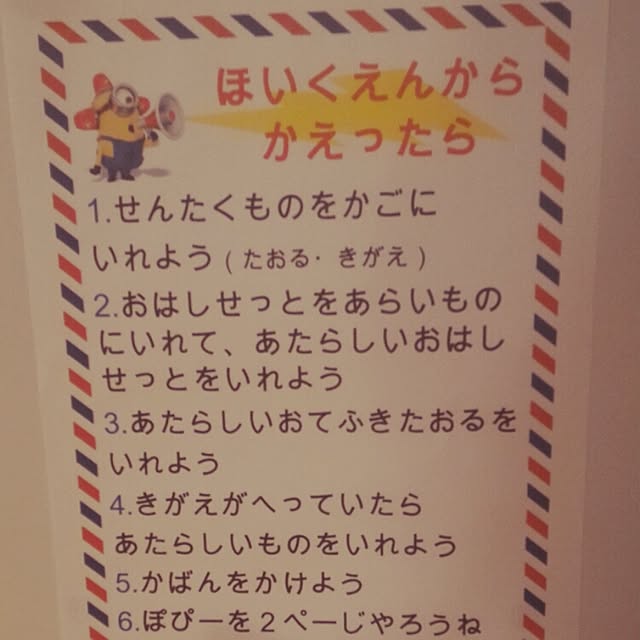 ほいくえんから
かえったら
1.せんたくものをかごに
いれよう(たおる・きがえ)
2.おはしせっとをあらいもの
にいれて、あたらしいおはし
せっとをいれよう
3.あたらしいおてふきたおるを
いれよう
4.きがえがへっていたら
あたらしいものをいれよう
5.かばんをかけよう
6.ぽぴーを2ぺーじやろうね